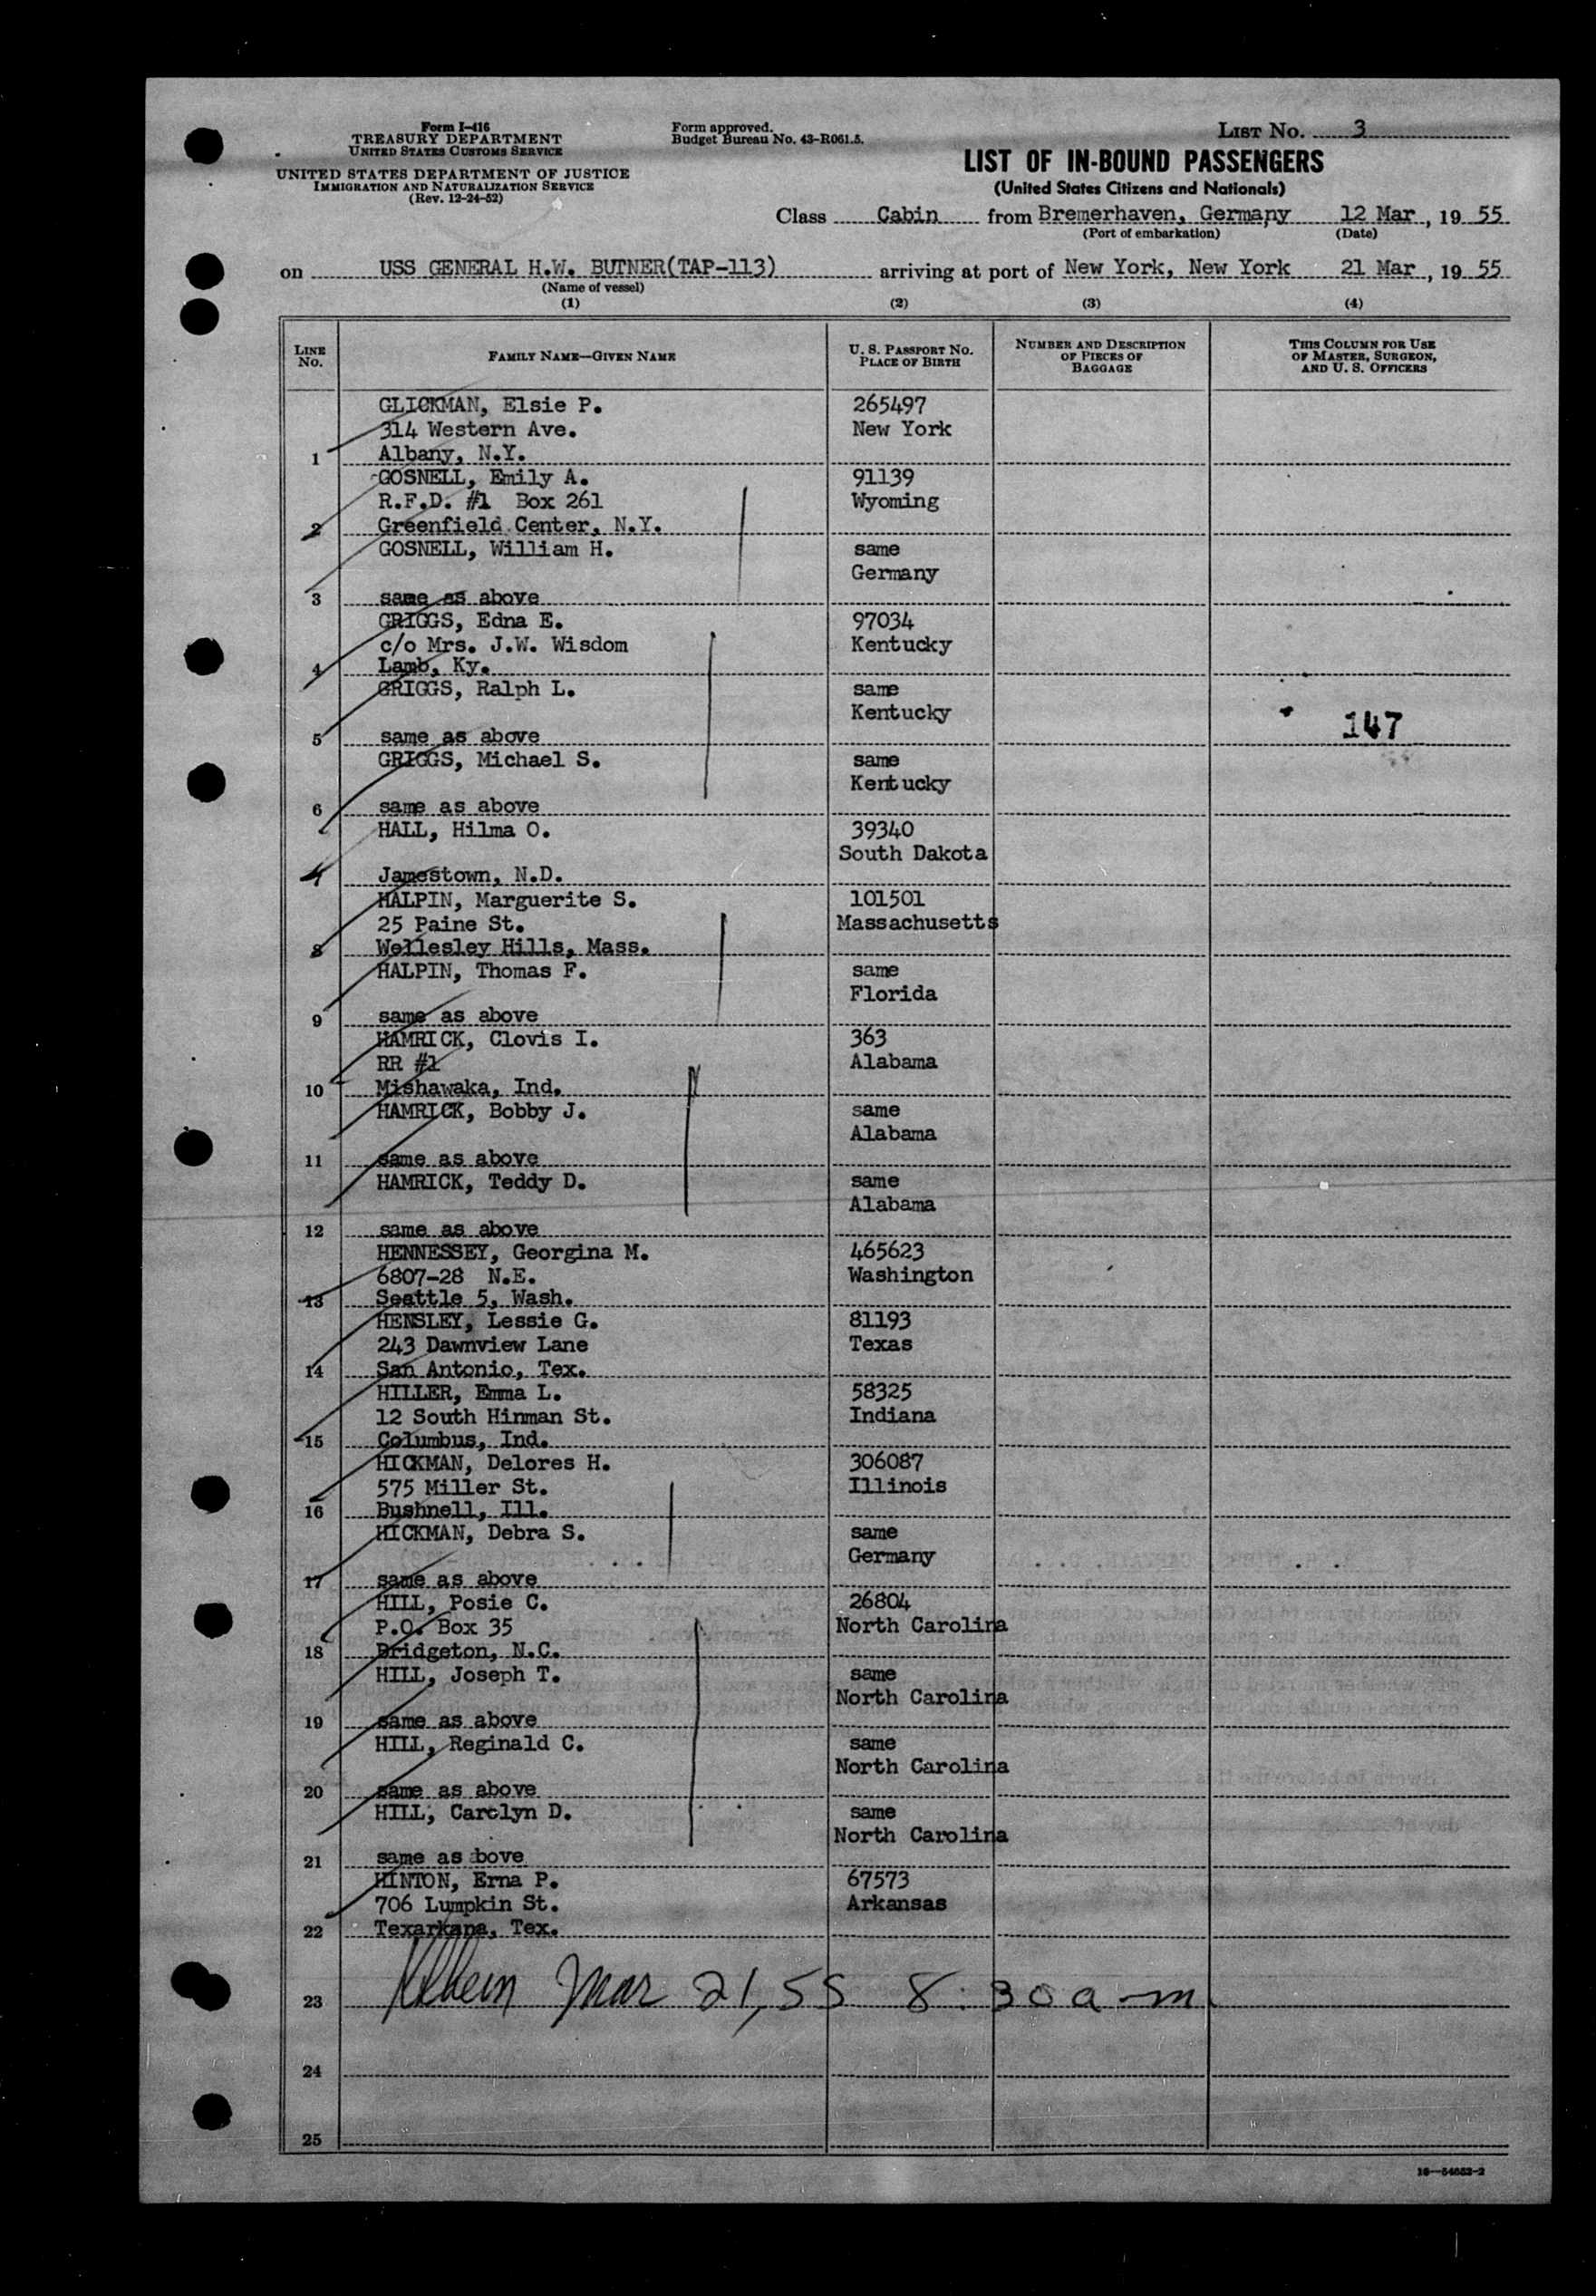 Form I-416
TREASURY DEPARTMENT
UNITED STATES CUSTOMS SERVICE
UNITED STATES DEPARTMENT OF JUSTICE
IMMIGRATION AND NATURALIZATION SERVICE
(Rev. 12-24-52)
Form approved.
Budget Bureau No. 43-R061.5.
LIST No. 3
LIST OF IN-BOUND PASSENGERS
(United States Citizens and Nationals)
Class Cabin from Bremerhaven, Germany 12 Mar, 19 55
(Port of embarkation) (Date)
on USS GENERAL H.W. BUTNER(TAP-113) arriving at port of New York, New York 21 Mar, 19 55
(Name of vessel)
(1) (2) (3) (4)
LINE No. FAMILY NAME—GIVEN NAME U. S. PASSPORT No. PLACE OF BIRTH NUMBER AND DESCRIPTION OF PIECES OF BAGGAGE THIS COLUMN FOR USE OF MASTER, SURGEON, AND U. S. OFFICERS
GLICKMAN, Elsie P. 265497
314 Western Ave. New York
1 Albany, N.Y.
GOSNELL, Emily A. 91139
R.F.D. #1 Box 261 Wyoming
2 Greenfield Center, N.Y.
GOSNELL, William H. same
Germany
3 same as above
GRIGGS, Edna E. 97034
c/o Mrs. J.W. Wisdom Kentucky
4 Lamb, Ky.
GRIGGS, Ralph L. same
Kentucky
147
5 same as above
GRIGGS, Michael S. same
Kentucky
6 same as above
HALL, Hilma O. 39340
South Dakota
Jamestown, N.D.
HALPIN, Marguerite S. 101501
25 Paine St. Massachusetts
8 Wellesley Hills, Mass.
HALPIN, Thomas F. same
Florida
9 same as above
HAMRICK, Clovis I. 363
RR #1 Alabama
10 Mishawaka, Ind.
HAMRICK, Bobby J. same
Alabama
11 same as above
HAMRICK, Teddy D. same
Alabama
12 same as above
HENNESSEY, Georgina M. 465623
6807-28 N.E. Washington
13 Seattle 5, Wash.
HENSLEY, Lessie G. 81193
243 Dawnview Lane Texas
14 San Antonio, Tex.
HILLER, Emma L. 58325
12 South Hinman St. Indiana
15 Columbus, Ind.
HICKMAN, Delores H. 306087
575 Miller St. Illinois
16 Bushnell, Ill.
HICKMAN, Debra S. same
Germany
17 same as above
HILL, Posie C. 26804
P.O. Box 35 North Carolina
18 Bridgeton, N.C.
HILL, Joseph T. same
North Carolina
19 same as above
HILL, Reginald C. same
North Carolina
20 same as above
HILL, Carolyn D. same
North Carolina
21 same as bove
HINTON, Erna P. 67573
706 Lumpkin St. Arkansas
22 Texarkana, Tex.
23 Mar 21, 55 8:30 a-m.
24
25
16—54652-2